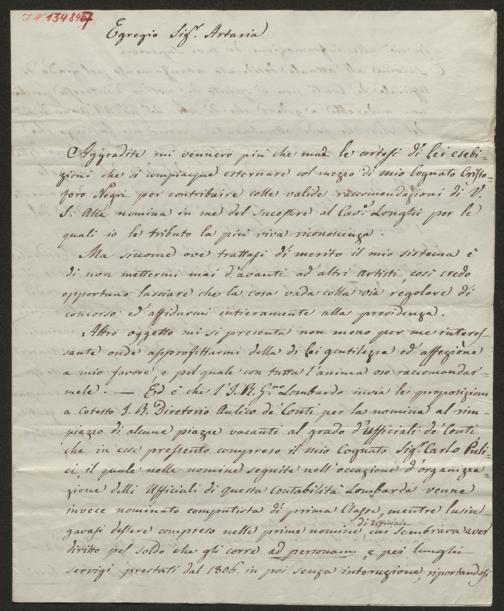 I.N. 134847
Egregio Sigr. Artaria
Aggradite mi vennero più che mai le cortesi di Lei esebi-
zioni che si compiacque esternare col mezzo di mio Cognato Cristo-
foro Negri per contribuire colle valide raccomandazioni di V.
S. alla nomina in me del sucessore al Cavr. Longhi per le
quali io le tributo la più viva riconoscenza.
Ma siccome ove trattasi di merito il mio sistema è
di non mettermi mai d'avanti ad altri artisti così credo
opportuno lasciare che la cosa vada colla via regolare di
concorso ed affidarmi intieramente alla providenza.
Altro oggetto mi si presenta non meno per me interes-
sante onde approfittarmi della di Lei gentilezza ed affezione
a mio favore, e pel quale con tutta l'anima oso raccomandar-
mele. — Ed è che l'I. R. Lombardo invia le proposizioni
a Cotesto I. R. Diretorio Aulico de Conti per la nomina al rim-
piazzo di alcune piazze vacanti al grado d'Ufficiali de Conti
che in esse pressento compreso il mio Cognato Sigr. Carlo
ci, il quale nelle nomine seguite nell'occasione d'organizza-
zione delli Ufficiali di questa Contabilità Lombarda venne
invece nominato computista di prima Classe, mentre lusin-
gavasi d'essere compreso nelle prime nomine di Ufficiale, cui sembrava aver
diritto pel soldo che gli corre ad personam, e pei lunghi
servigi prestati dal 1806. in poi senza interuzione, riportandosi